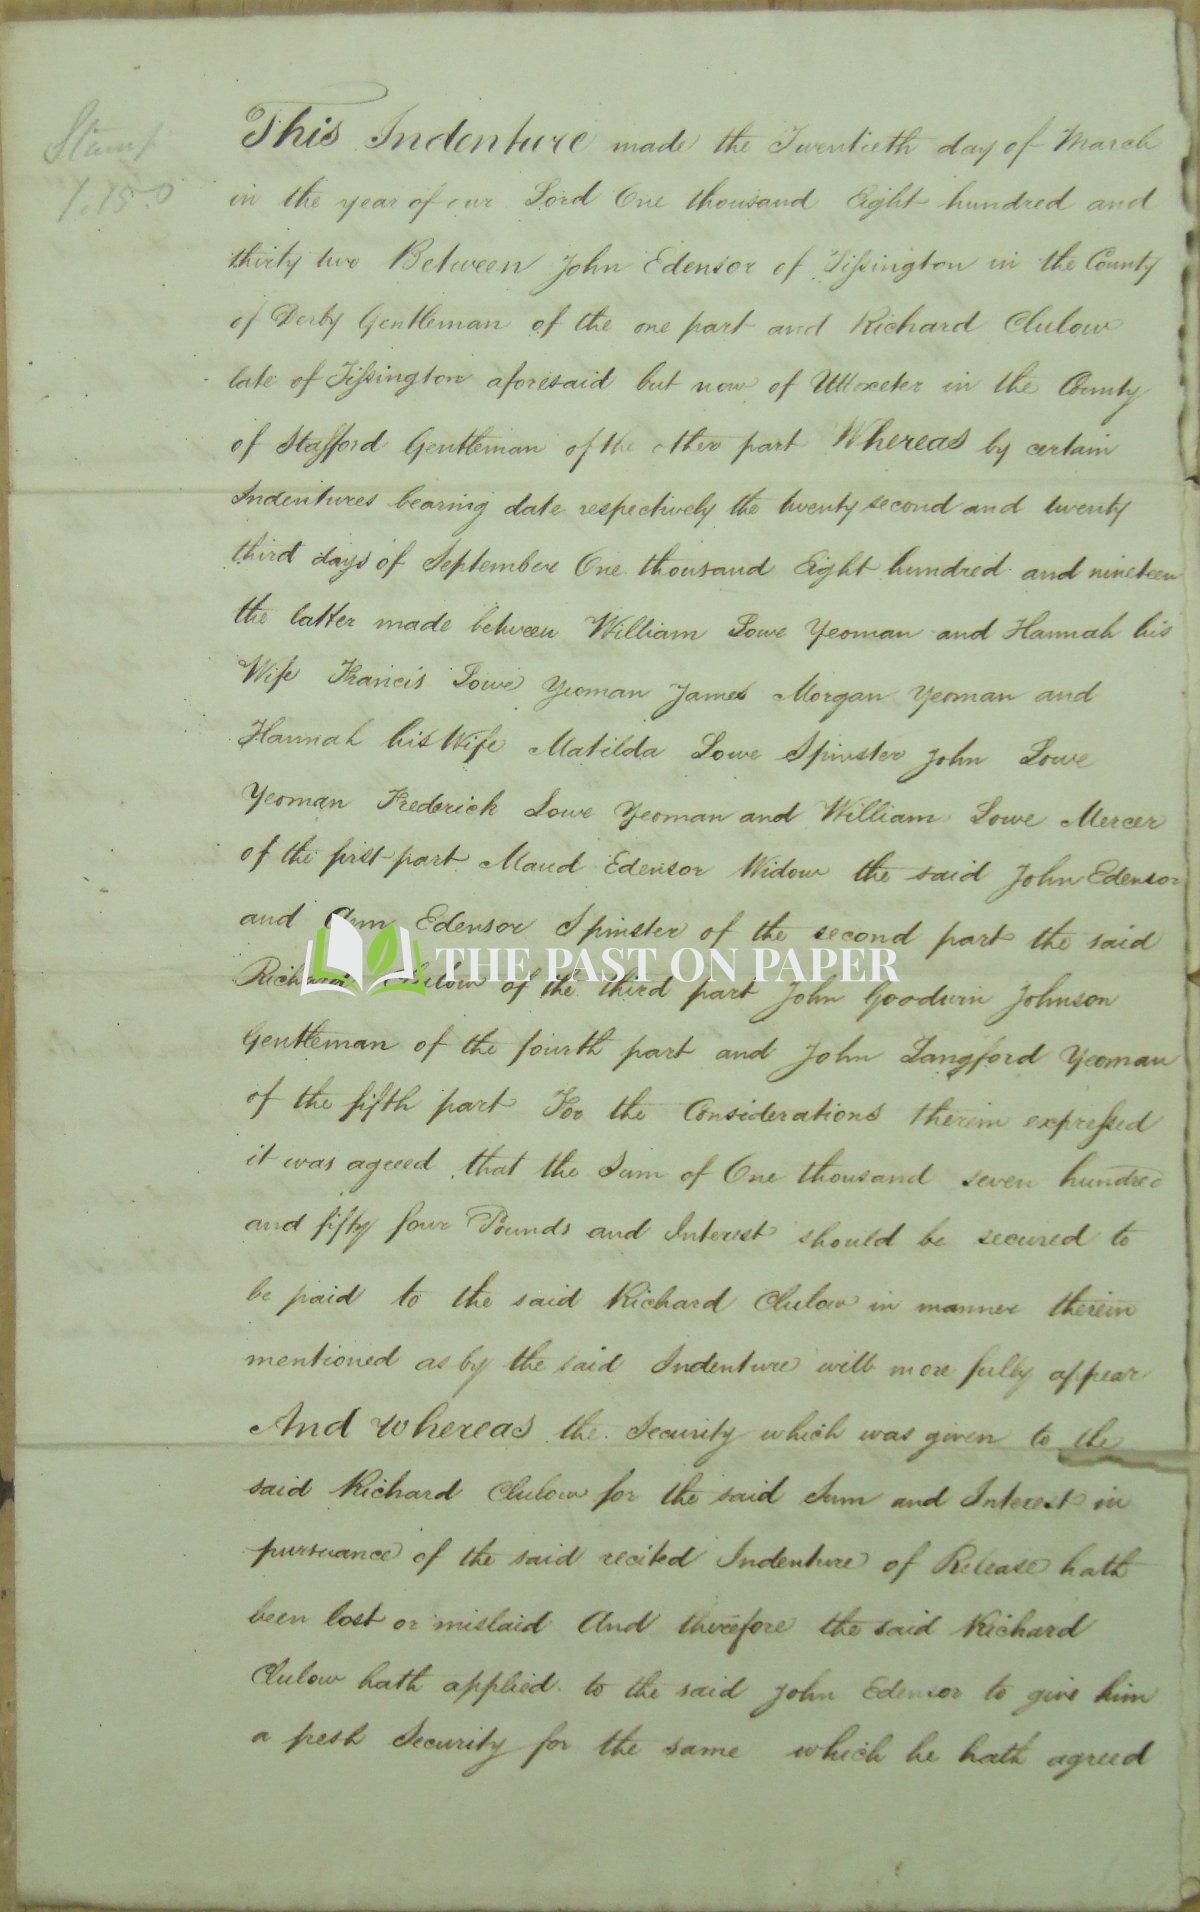 Stamp
1.15.0
This Indenture made the Twentieth day of March
in the year of our Lord One thousand Eight hundred and
thirty two Between John Edensor of Tissington in the County
of Derby Gentleman of the one part and Richard Clulow
late of Tissington aforesaid but now of Uttoxeter in the County
of Stafford Gentleman of the other part Whereas by certain
Indentures bearing date respectively the twenty second and twenty
third days of September One thousand Eight hundred and nineteen
the latter made between William Lowe Yeoman and Hannah his
Wife Francis Lowe Yeoman James Morgan Yeoman and
Hannah his Wife Matilda Lowe Spinster John Lowe
Yeoman Frederick Lowe Yeoman and William Lowe Mercer
of the first part Maud Edensor Widow the said John Edensor
and Ann Edensor Spinster of the second part the said
THE PAST ON PAPER
Richard Clulow of the third part John Goodwin Johnson
Gentleman of the fourth part and John Langford Yeoman
of the fifth part For the Considerations therein expressed
it was agreed that the Sum of One thousand seven hundred
and fifty four Pounds and Interest should be secured to
be paid to the said Richard Clulow in manner therein
mentioned as by the said Indenture will more fully appear
And Whereas the Security which was given to the
said Richard Clulow for the said Sum and Interest in
pursuance of the said recited Indenture of Release hath
been lost or mislaid And therefore the said Richard
Clulow hath applied to the said John Edensor to give him
a fresh Security for the same which he hath agreed